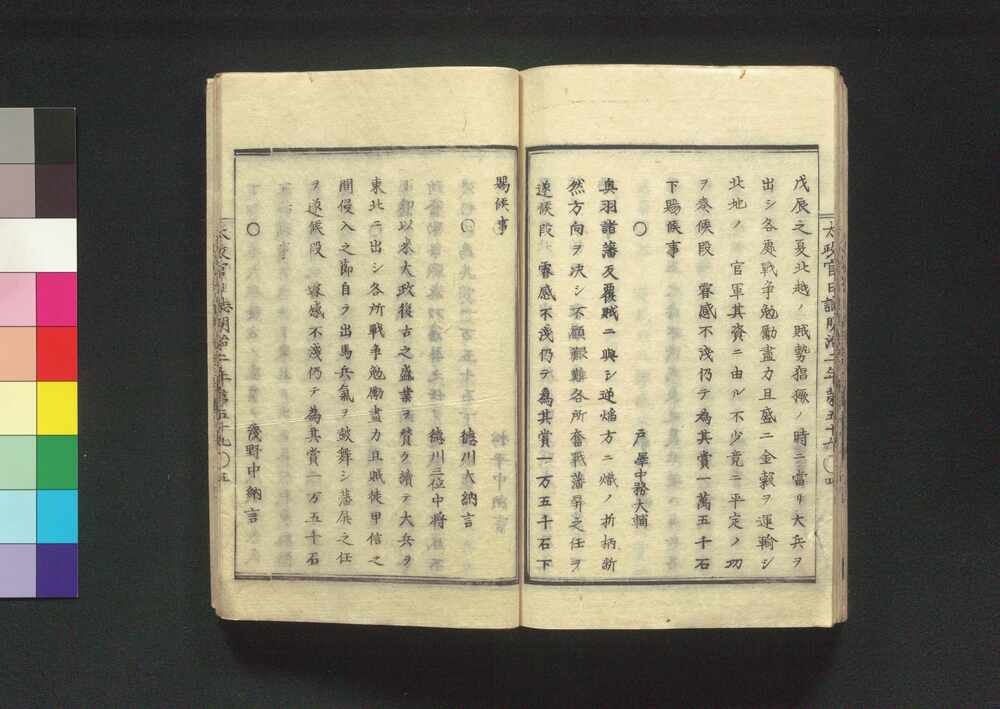 戊辰之夏北越ノ賊勢猖獗ノ時ニ當リ大兵ヲ
出シ各處戦争勉勵盡力且盛ニ金穀ヲ運輸シ
北地ノ官軍其資ニ由ル不少竟ニ平定ノ功
ヲ奏候段 叡感不淺仍テ為其賞一萬五千石
下賜候事
○ 戸澤中務大輔
奥羽諸藩反覆賊ニ與シ逆焔方ニ熾ノ折柄断
然方向ヲ决シ不顧艱難各所奮戰藩屏之任ヲ
遂候段 叡感不淺仍テ為其賞一万五千石下
賜候事
○ 徳川大納言
徳川三位中将
正卿以来大政復古之盛業ヲ賛ク續テ大兵ヲ
東北ニ出シ各所戦争勉勵盡力且賊徒甲信之
間侵入之節自ラ出馬兵氣ヲ鼓舞シ藩屏之任
ヲ遂候段 叡感不淺仍テ為其賞一万五千石
○ 淺野中納言
太政官日誌明治二年第五十九 ○四
太政官日誌明治二年第五十九 ○五